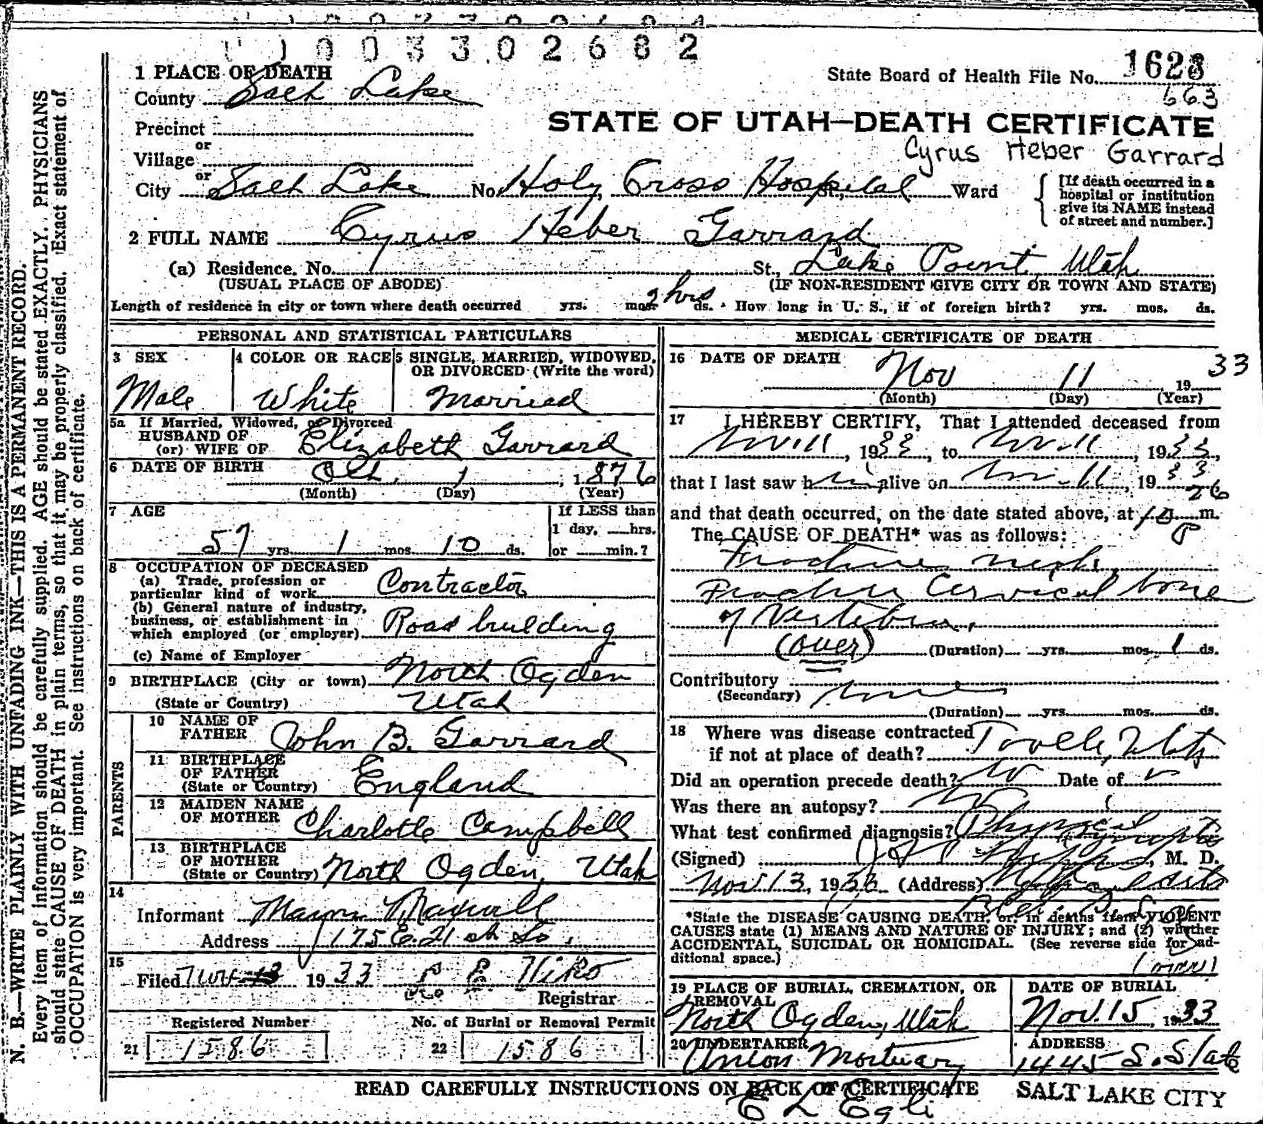 U 1 0 0 3 3 0 2 6 8 2
1 PLACE OF DEATH
County Salt Lake
State Board of Health File No. 1623
663
Precinct
or
Village
or
STATE OF UTAH—DEATH CERTIFICATE
Cyrus Heber Garrard
City Salt Lake No. Holy Cross Hospital St., Ward
[If death occurred in a hospital or institution give its NAME instead of street and number.]
2 FULL NAME Cyrus Heber Garrard
(a) Residence. No. St., Lake Point, Utah
(USUAL PLACE OF ABODE) (IF NON-RESIDENT GIVE CITY OR TOWN AND STATE)
Length of residence in city or town where death occurred yrs. mos. 2 hrs ds. How long in U. S., if of foreign birth? yrs. mos. ds.
PERSONAL AND STATISTICAL PARTICULARS
3 SEX
Male
4 COLOR OR RACE
White
5 SINGLE, MARRIED, WIDOWED,
OR DIVORCED (Write the word)
Married
5a If Married, Widowed, or Divorced
HUSBAND OF
(or) WIFE OF Elizabeth Garrard
6 DATE OF BIRTH Oct. 1, 1876
(Month) (Day) (Year)
7 AGE
57 yrs. 1 mos. 10 ds.
If LESS than
1 day, hrs.
or min.?
8 OCCUPATION OF DECEASED
(a) Trade, profession or
particular kind of work Contractor
(b) General nature of industry,
business, or establishment in
which employed (or employer) Road building
(c) Name of Employer
9 BIRTHPLACE (City or town) North Ogden
(State or Country) Utah
PARENTS
10 NAME OF
FATHER John B. Garrard
11 BIRTHPLACE
OF FATHER
(State or Country) England
12 MAIDEN NAME
OF MOTHER Charlotte Campbell
13 BIRTHPLACE
OF MOTHER
(State or Country) North Ogden, Utah
14
Informant Maxwell
Address 175 E. 21 st So.
15
Filed Nov 13 1933
Registrar
Registered Number
21 1586
No. of Burial or Removal Permit
22 1586
MEDICAL CERTIFICATE OF DEATH
16 DATE OF DEATH
Nov 11 1933
(Month) (Day) (Year)
17 I HEREBY CERTIFY, That I attended deceased from
Nov 11, 1933, to Nov 11, 1933,
that I last saw him alive on Nov 11, 1933
and that death occurred, on the date stated above, at m.
The CAUSE OF DEATH* was as follows:
Fracture neck.
Fracture Cervical bone
of Vertebra.
(over) (Duration) yrs. mos. 1 ds.
Contributory
(Secondary) none
(Duration) yrs. mos. ds.
18 Where was disease contracted
if not at place of death? Tooele, Utah
Did an operation precede death? No Date of
Was there an autopsy? No
What test confirmed diagnosis? Physical Symptoms
(Signed) M. D.
Nov 13, 1933 (Address)
*State the DISEASE CAUSING DEATH, or, in deaths from VIOLENT
CAUSES state (1) MEANS AND NATURE OF INJURY; and (2) whether
ACCIDENTAL, SUICIDAL OR HOMICIDAL. (See reverse side for ad-
ditional space.)
(over)
19 PLACE OF BURIAL, CREMATION, OR
REMOVAL
North Ogden, Utah
DATE OF BURIAL
Nov. 15, 1933
20 UNDERTAKER
Union Mortuary
ADDRESS
1445 S. State
READ CAREFULLY INSTRUCTIONS ON BACK OF CERTIFICATE
SALT LAKE CITY
E L Egli
N. B.—WRITE PLAINLY WITH UNFADING INK—THIS IS A PERMANENT RECORD.
Every item of information should be carefully supplied. AGE should be stated EXACTLY. PHYSICIANS
should state CAUSE OF DEATH in plain terms, so that it may be properly classified. Exact statement of
OCCUPATION is very important. See instructions on back of certificate.